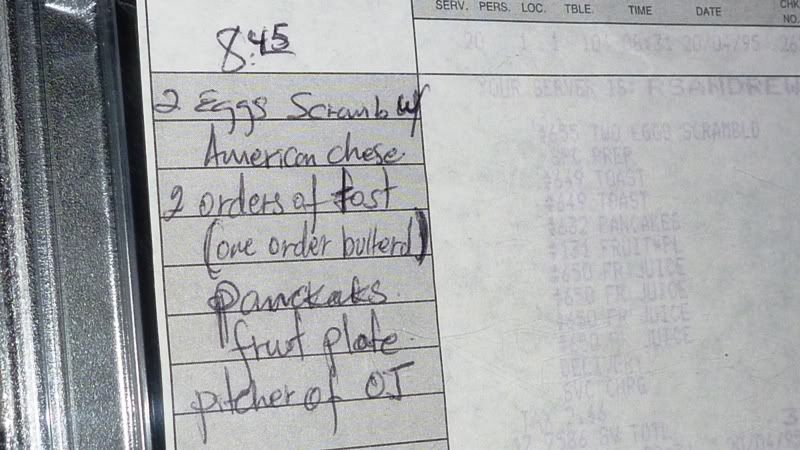 8:45
2 Eggs Scramb w/
American chese
2 orders of tost
(one order butterd)
panckaks.
fruit plate.
pitcher of OJ
SERV. PERS. LOC. TBLE. TIME DATE CHK. NO.
20 1 1 20/04/95 26
YOUR SERVER IS: RSANDREW
#655 TWO EGGS SCRAMBLD
SPC PREP
#649 TOAST
#649 TOAST
#632 PANCAKES
#131 FRUIT PL
#650 FR JUICE
#650 FR JUICE
#650 FR JUICE
#650 FR JUICE
DELIVERY
SVC CHRG
TAX
TOTL